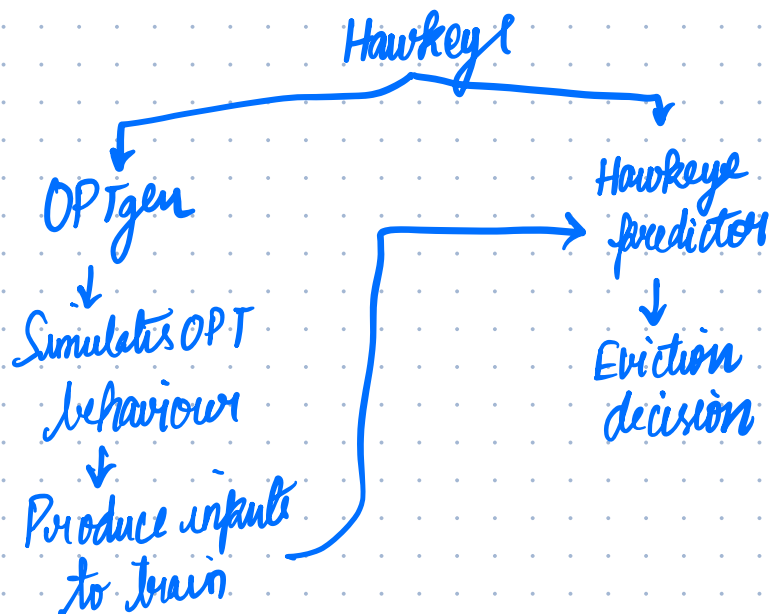 Hawkeye
OPTgen
Simulates OPT
behaviour
Produce inputs
to train
Hawkeye
predictor
Eviction
decision